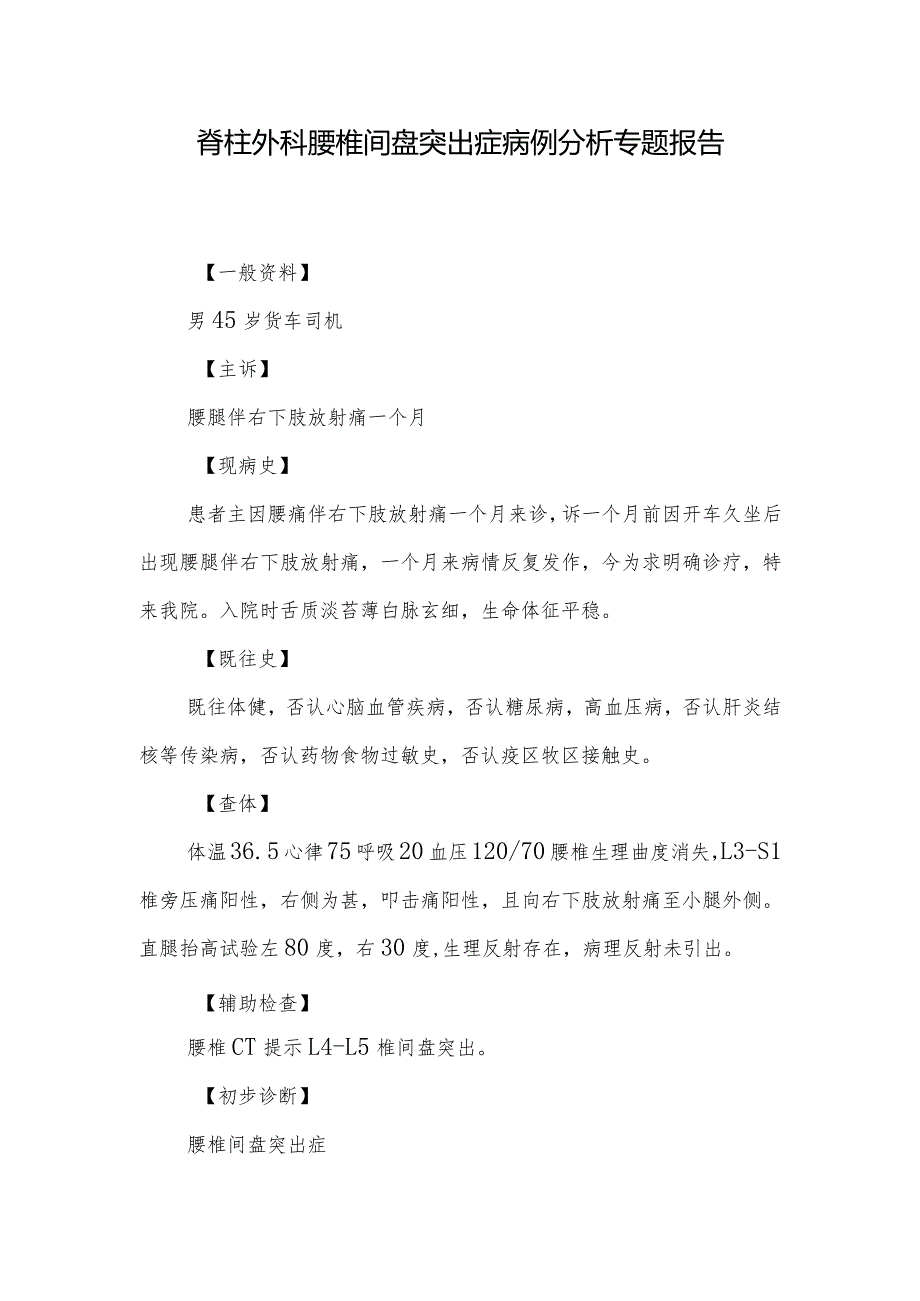 脊柱外科腰椎间盘突出症病例分析专题报告
【一般资料】
男 45 岁货车司机
【主诉】
腰腿伴右下肢放射痛一个月
【现病史】
患者主因腰痛伴右下肢放射痛一个月来诊,诉一个月前因开车久坐后
出现腰腿伴右下肢放射痛，一个月来病情反复发作，今为求明确诊疗，特
来我院。入院时舌质淡苔薄白脉玄细，生命体征平稳。
【既往史】
既往体健，否认心脑血管疾病，否认糖尿病，高血压病，否认肝炎结
核等传染病，否认药物食物过敏史，否认疫区牧区接触史。
【查体】
体温 36.5 心律 75 呼吸 20 血压 120/70 腰椎生理曲度消失,L3-S1
椎旁压痛阳性，右侧为甚，叩击痛阳性，且向右下肢放射痛至小腿外侧。
直腿抬高试验左 80 度，右 30 度,生理反射存在，病理反射未引出。
【辅助检查】
腰椎 CT 提示 L4-L5 椎间盘突出。
【初步诊断】
腰椎间盘突出症